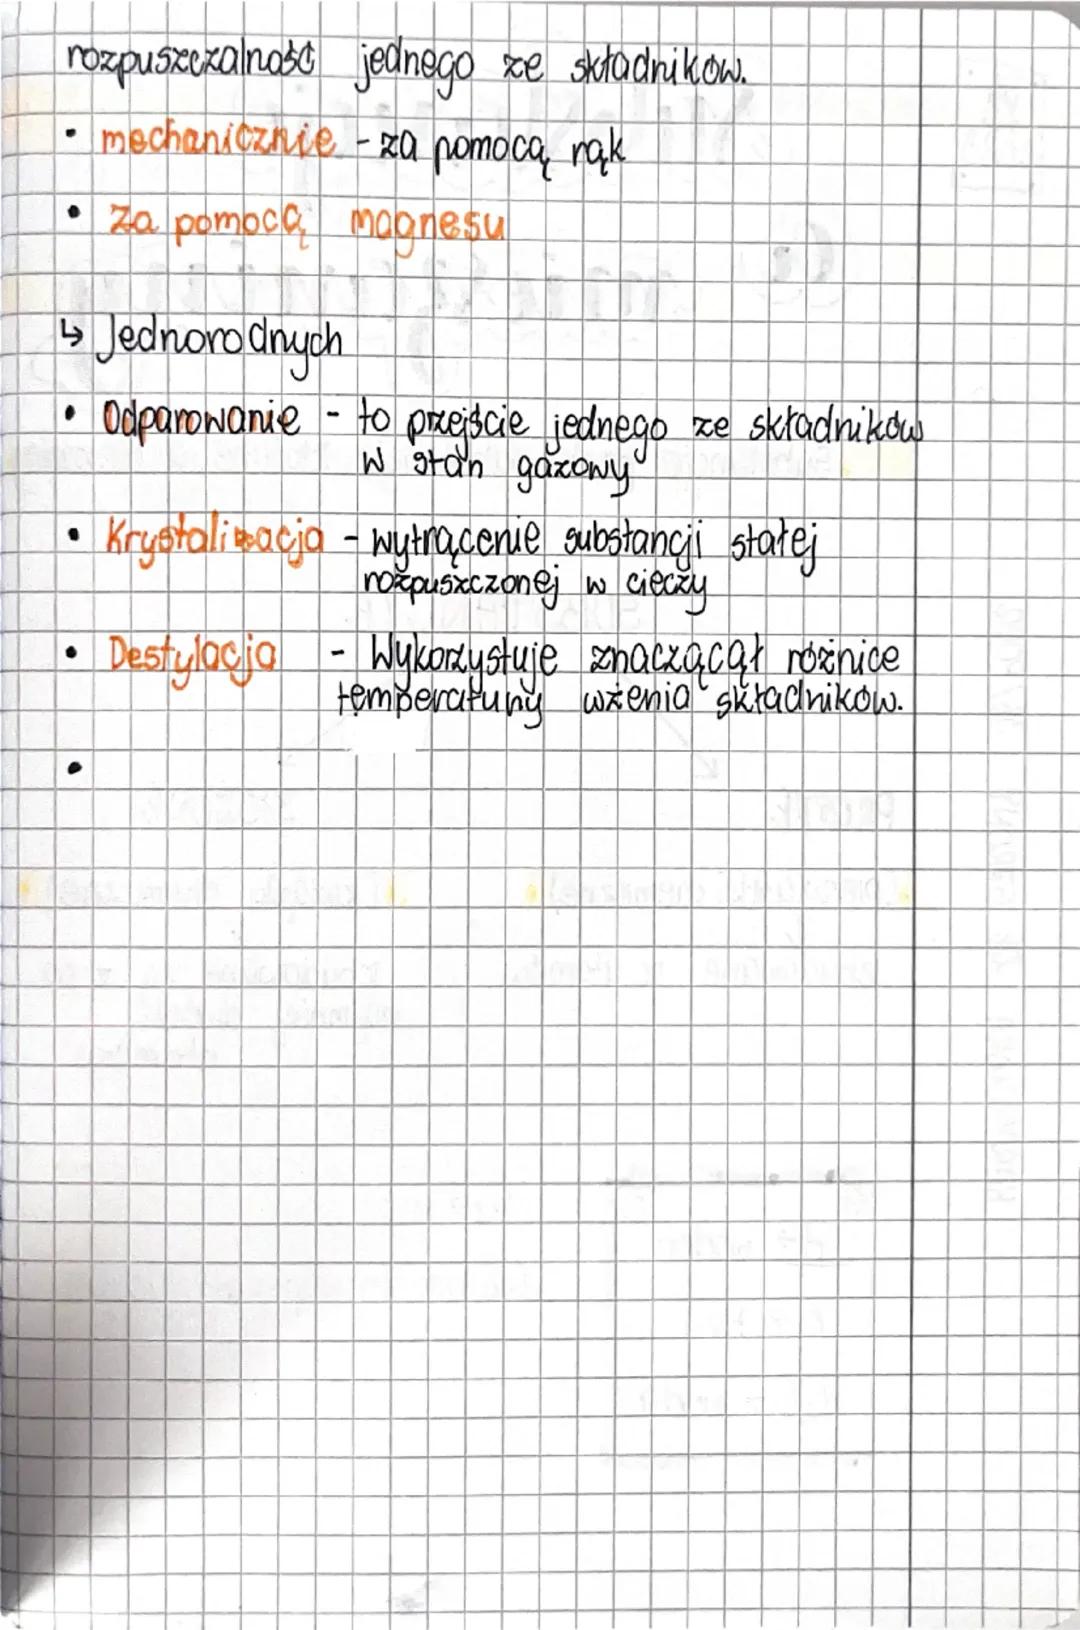 rozpuszczalność jednego ze składników.
• mechanicznie - za pomocą rąk
• za pomocą magnesu
↳ Jednorodnych
• Odparowanie - to przejście jednego ze składników
w stan gazowy
• Krystalizacja - wytrącenie substancji stałej
rozpuszczonej w cieczy
• Destylacja - Wykorzystuje znaczącął różnice
temperatury wżenia składników.
•